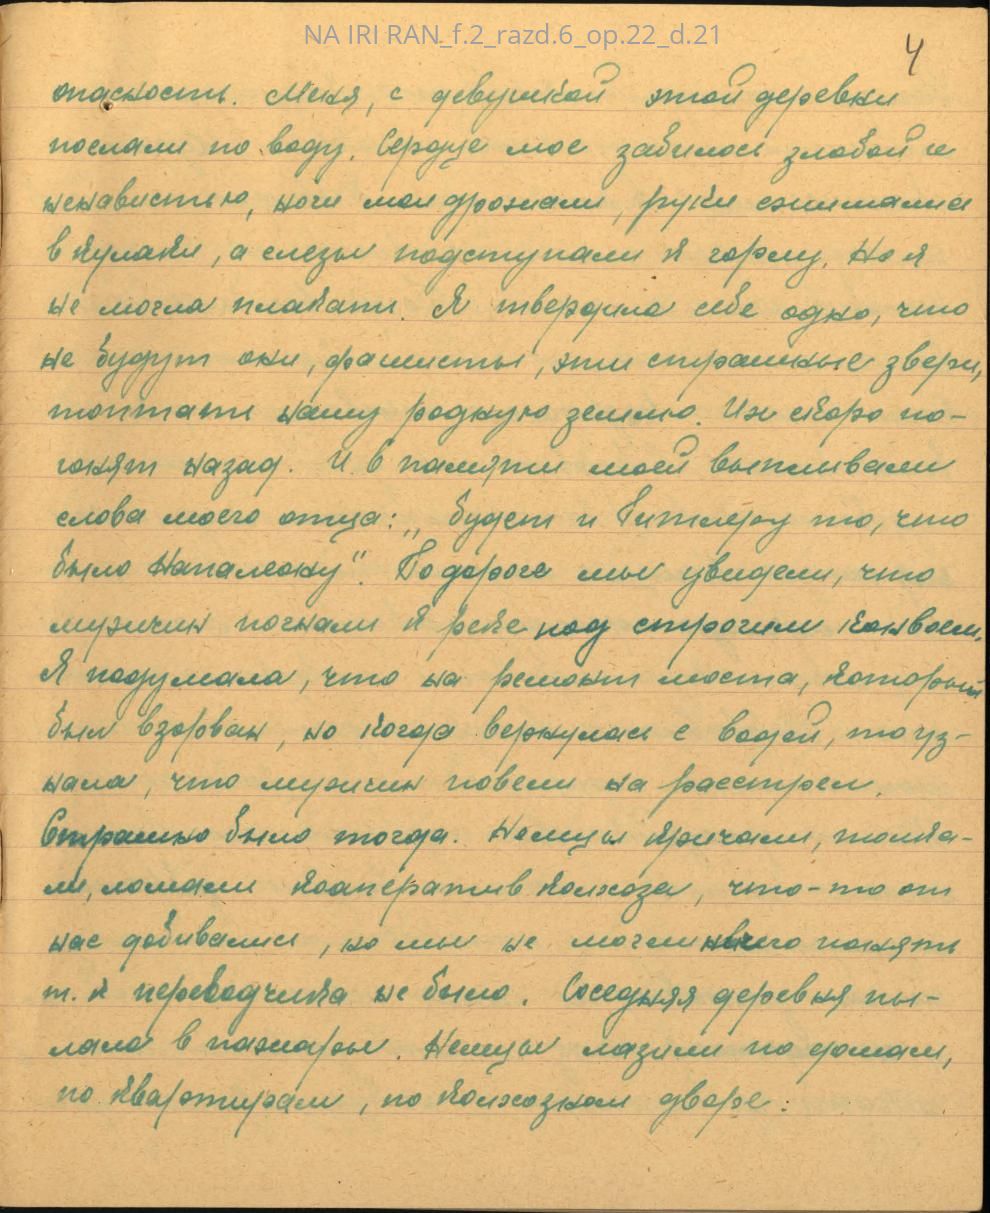 NA IRI RAN_f.2_razd.6_op.22_d.21
4
опасность. Меня, с девушкой этой деревни
послали по воду. Сердце мое забилось злобой и
ненавистью, ноги мои дрожали, руки сжимались
в кулаки, а слезы подступали к горлу. Но я
не могла плакать. Я твердила себе одно, что
не будут они, фашисты, эти страшные звери,
топтать нашу родную землю. Их скоро по-
гонят назад. И в памяти моей выплывали
слова моего отца: „будет и Гитлеру то, что
было Напалеону". По дороге мы увидели, что
мужчин погнали к реке под строгим конвоем.
Я подумала, что на ремонт моста, который
был взорван, но когда вернулась с водой, то уз-
нала, что мужчин повели на расстрел.
Страшно было тогда. Немцы кричали, толка-
ли, ломали кооператив колхоза, что-то от
нас добивались, но мы не могли понять
т. к переводчика не было. Соседняя деревня пы-
лала в пожаре. Немцы лазили по домам,
по квартирам, по колхозном дворе.